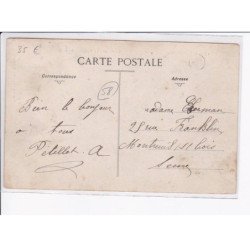 35 €
CARTE POSTALE
Correspondance
Adresse
Bien le bonjour
à tous
Petellet A
Madame Herman
25 rue Franklin
Montreuil st bois
Seine